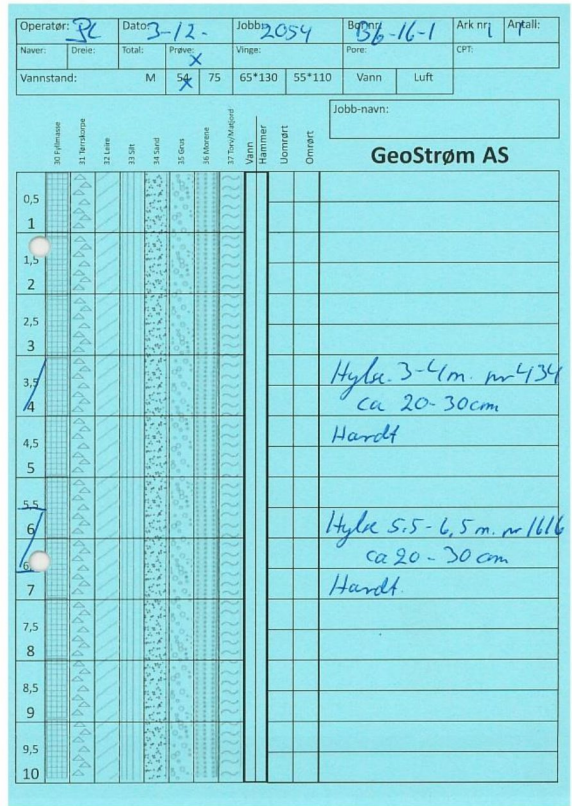 Operatør: PL Dato: 3-12- Jobbnr 2054 Bornr: B6-16-1 Ark nr: 1 Antall: 1
Naver: Dreie: Total: Prøve: x Vinge: Pore: CPT:
Vannstand: M 54 x 75 65*130 55*110 Vann Luft
Jobb-navn:
GeoStrøm AS
30 Fyllmasse 31 Tørrskorpe 32 Leire 33 Silt 34 Sand 35 Grus 36 Morene 37 Torv/Matjord Vann Hammer Uomrørt Omrørt
0,5
1
1,5
2
2,5
3
3,5 Hylse. 3-4m. nr 434
4 ca 20-30cm
4,5 Hardt
5
5,5
6 Hylse 5.5-6,5m. nr 1616
6 ca 20-30 cm
7 Hardt.
7,5
8
8,5
9
9,5
10